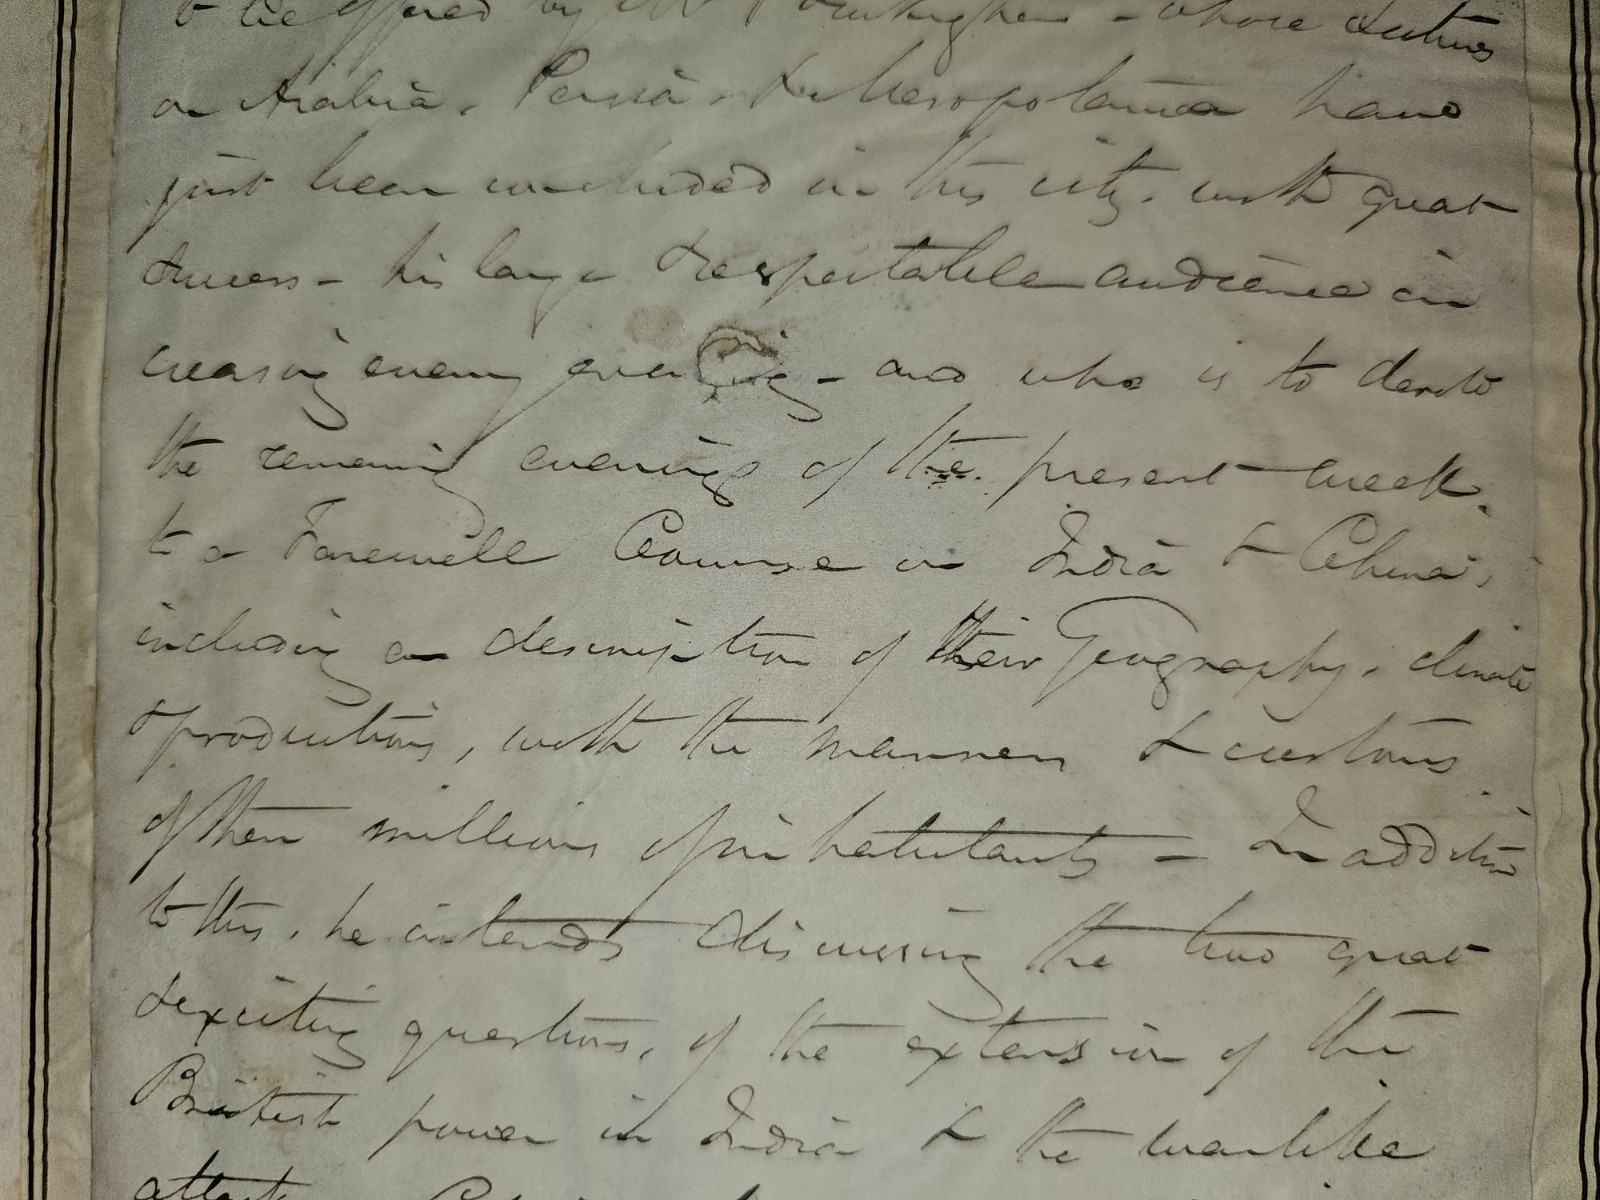 to be offered by Mr Buckingham - whose Lectures
on Arabia, Persia, & Mesopotamia have
just been concluded in this city, with great
success - his large & respectable audience in
creasing every evening - and who is to devote
the remaining evenings of the present week,
to a Farewell Course on India & China,
including a description of their Geography, climate
& productions, with the manners & customs
of their millions of inhabitants - In addition
to this, he intends discussing the two great
& exciting questions, of the extension of the
British power in India & the warlike
attack